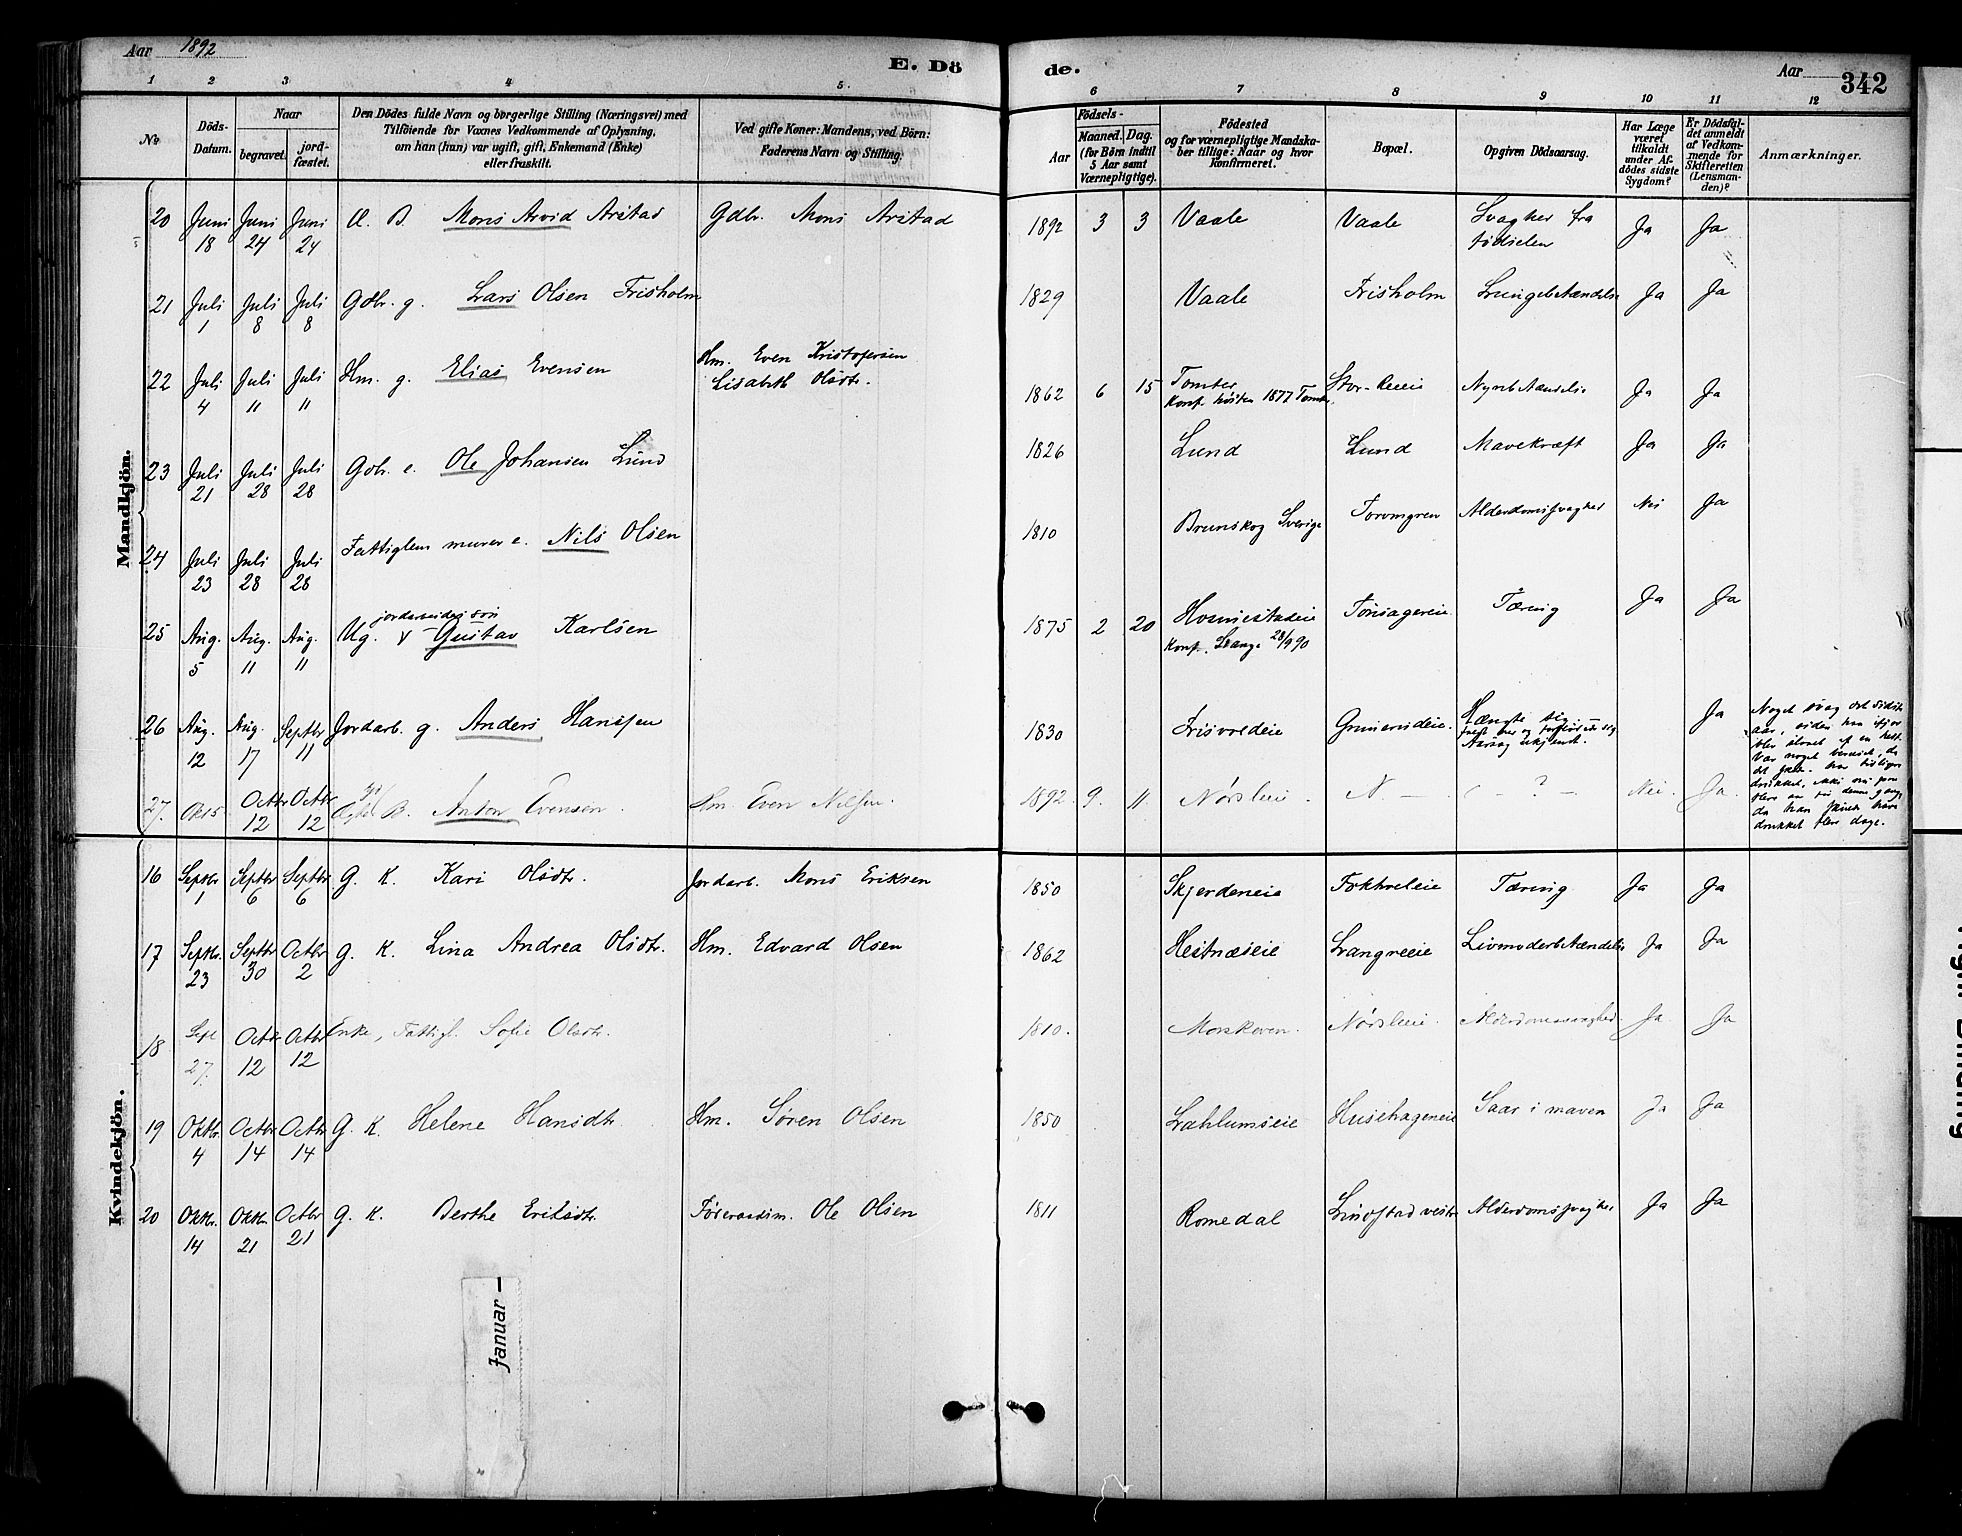 Aar 1892
E. Dö
de.
Aar 342
1 2 3 4 5. 6 7 8 9 10 11 12
No
Döds-Datum.
Naar
begravet.
jord-fæstet.
Den Dödes fulde Navn og borgerlige Stilling (Næringsvei) med
Tilföiende for Voxnes Vedkommende af Oplysning,
om han (hun) var ugift, gift, Enkemand (Enke)
eller fraskilt.
Ved gifte Koner: Mandens, ved Börn:
Faderens Navn og Stilling.
Födsels-
Aar
Maaned. Dag.
(for Börn indtil
5 Aar samt
Værnepligtige).
Födested
og for værnepligtige Mandska-
ber tillige: Naar og hvor
konfirmeret.
Bopæl.
Opgiven Dödsaarsag.
Har Læge
været
tilkaldt
under Af-
dödes sidste
Sygdom?
Er Dödsfal-
det anmeldt
af Vedkom-
mende for
Skifteretten
(Lensman-
den)?
Anmærkninger.
Mandkjön.
20 Juni 18 Juni 24 Juni 24 B. Mons Arvid Arstad Gdbr. Mons Arstad 1892 3 3 Vaale Vaale Svaghed fra fødselen Ja Ja
21 Juli 1 Juli 8 Juli 8 Gdbr. g. Lars Olsen Frisholm 1829 Vaale Frisholm Lungebetændelse Ja Ja
22 Juli 4 Juli 11 Juli 11 Hm. g. Elias Evensen Hm. Even Kristofersen Lisabeth Olsdtr. 1862 6 15 Tomter Konf. høsten 1877 Tomter Stor-Reeie Nyrebetændelse Ja Ja
23 Juli 21 Juli 28 Juli 28 Gbr. e. Ole Johansen Lund 1826 Lund Lund Mavekræft Ja Ja
24 Juli 23 Juli 28 Juli 28 Fattiglem murer e. Nils Olsen 1810 Brunskog Sverige Toromgren Alderdomssvaghed Nei Ja
25 Aug. 5 Aug. 11 Aug. 11 Ug. jordarbeiders søn Gustav Karlsen 1875 2 20 Konf. Stange 28/9 90 Tønsagereie Tæring Ja Ja
26 Aug. 12 Aug. 17 Septbr 11 Jordarb. g. Anders Hanssen 1830 Frisvoldeie Grimerudeie Hængte sig Aarsag ukjendt. Ja
Noget svag det sidste
aar, siden han ifjor
blev slaaet af en hest.
27. Okt 5 Octbr 12 Octbr 12 B. Anton Evensen. Hm. Even Nilsen. 1892. 9. 11 Nørsleie. N — - ? - Nei. Ja.
da han skulde have
drukket flere dage.
Kvindekjön.
16 Septbr 1 Septbr 6 Septbr 6 G. K. Kari Olsdtr. Jordarb. Mons Eriksen 1850 Skjerdeneie Fokholeie Tæring Ja Ja
17 Septbr. 23 Septbr 30 Octbr 2 G. K. Lina Andrea Olsdtr. Hm. Edvard Olsen 1862 Hestnæseie Svangreeie Livmoderbetændelse Ja Ja
18 Sept 27. Octbr 12 Octbr 12 Enke, Fattigl. Sofie Olsdtr. 1810. Morskoven. Nørsleie. Alderdomssvaghed. Ja. Ja
19 Oktbr. 4 Octbr 14 Octbr 14 G. K. Helene Hansdtr. Hm. Søren Olsen 1850 Sæhlumseie Husehageneie Saar i maven Ja Ja
20 Oktbr. 14 Oktbr. 21 Octbr 21 G. K. Berthe Eriksdtr. Føderaadsm. Ole Olsen 1811 Romedal Lindstad vestre Alderdomssvaghed Ja Ja
Januar –